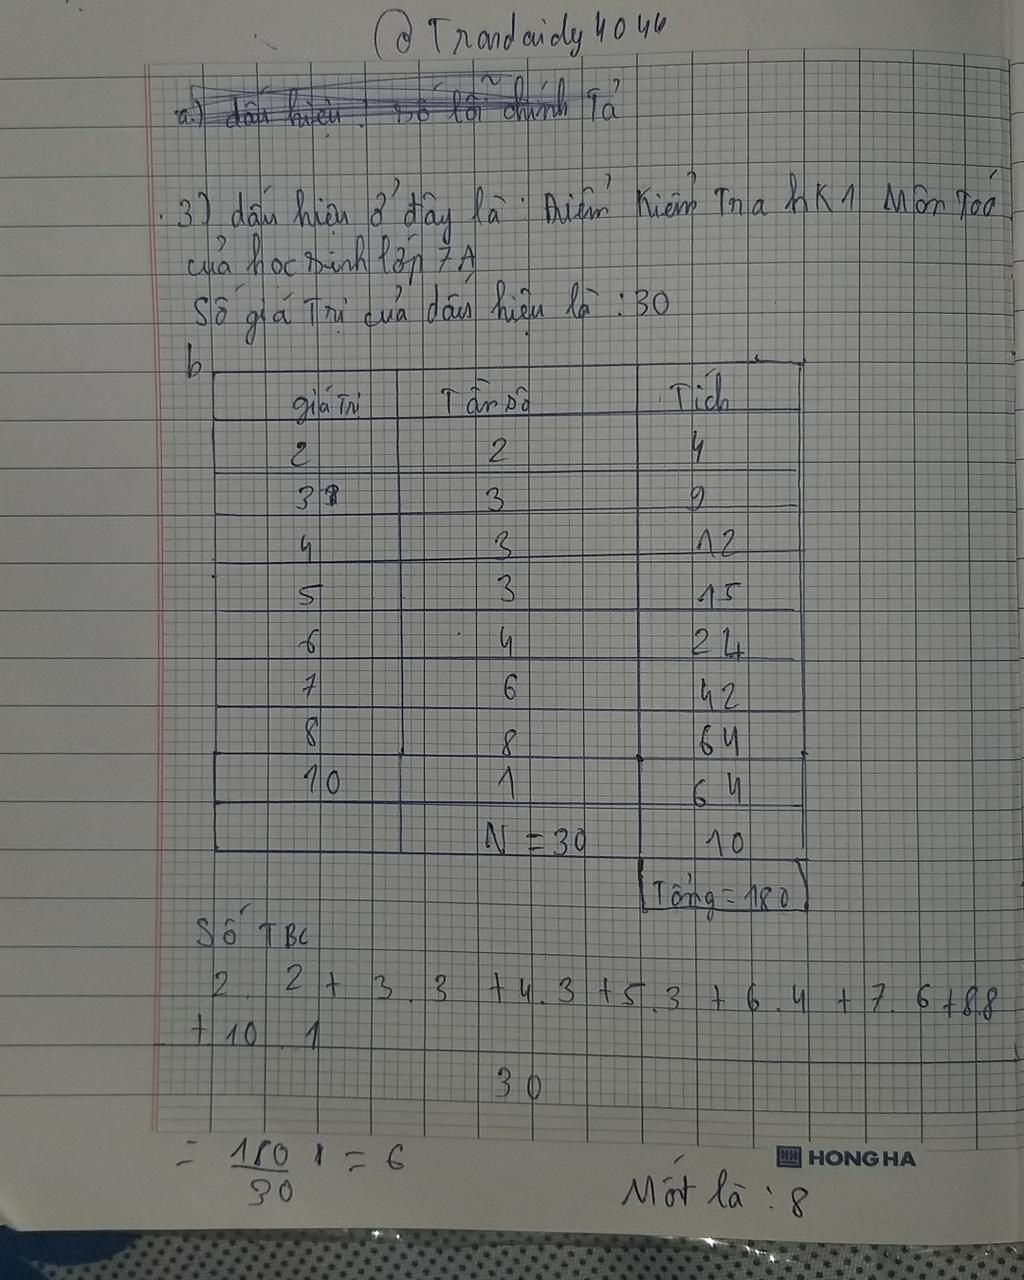 @Trandaidy4044
a.) dấu hiệu : số lỗi chính Tả
3) dấu hiệu ở đây là : Điểm Kiểm Tra hK1 Môn Toá
của học sinh lớp 7A
Số giá Trị của dấu hiệu là : 30
b
giá Trị Tần số Tích
2 2 4
3 3 9
4 3 12
5 3 15
6 4 24
7 6 42
8 8 64
10 1 64
N = 30 10
Tổng = 180
Số TBC
2 . 2 + 3 . 3 + 4 . 3 + 5 . 3 + 6 . 4 + 7 . 6 + 8.8
+ 10 . 1
30
= 180/30 = 6
HONG HA
Mốt là : 8